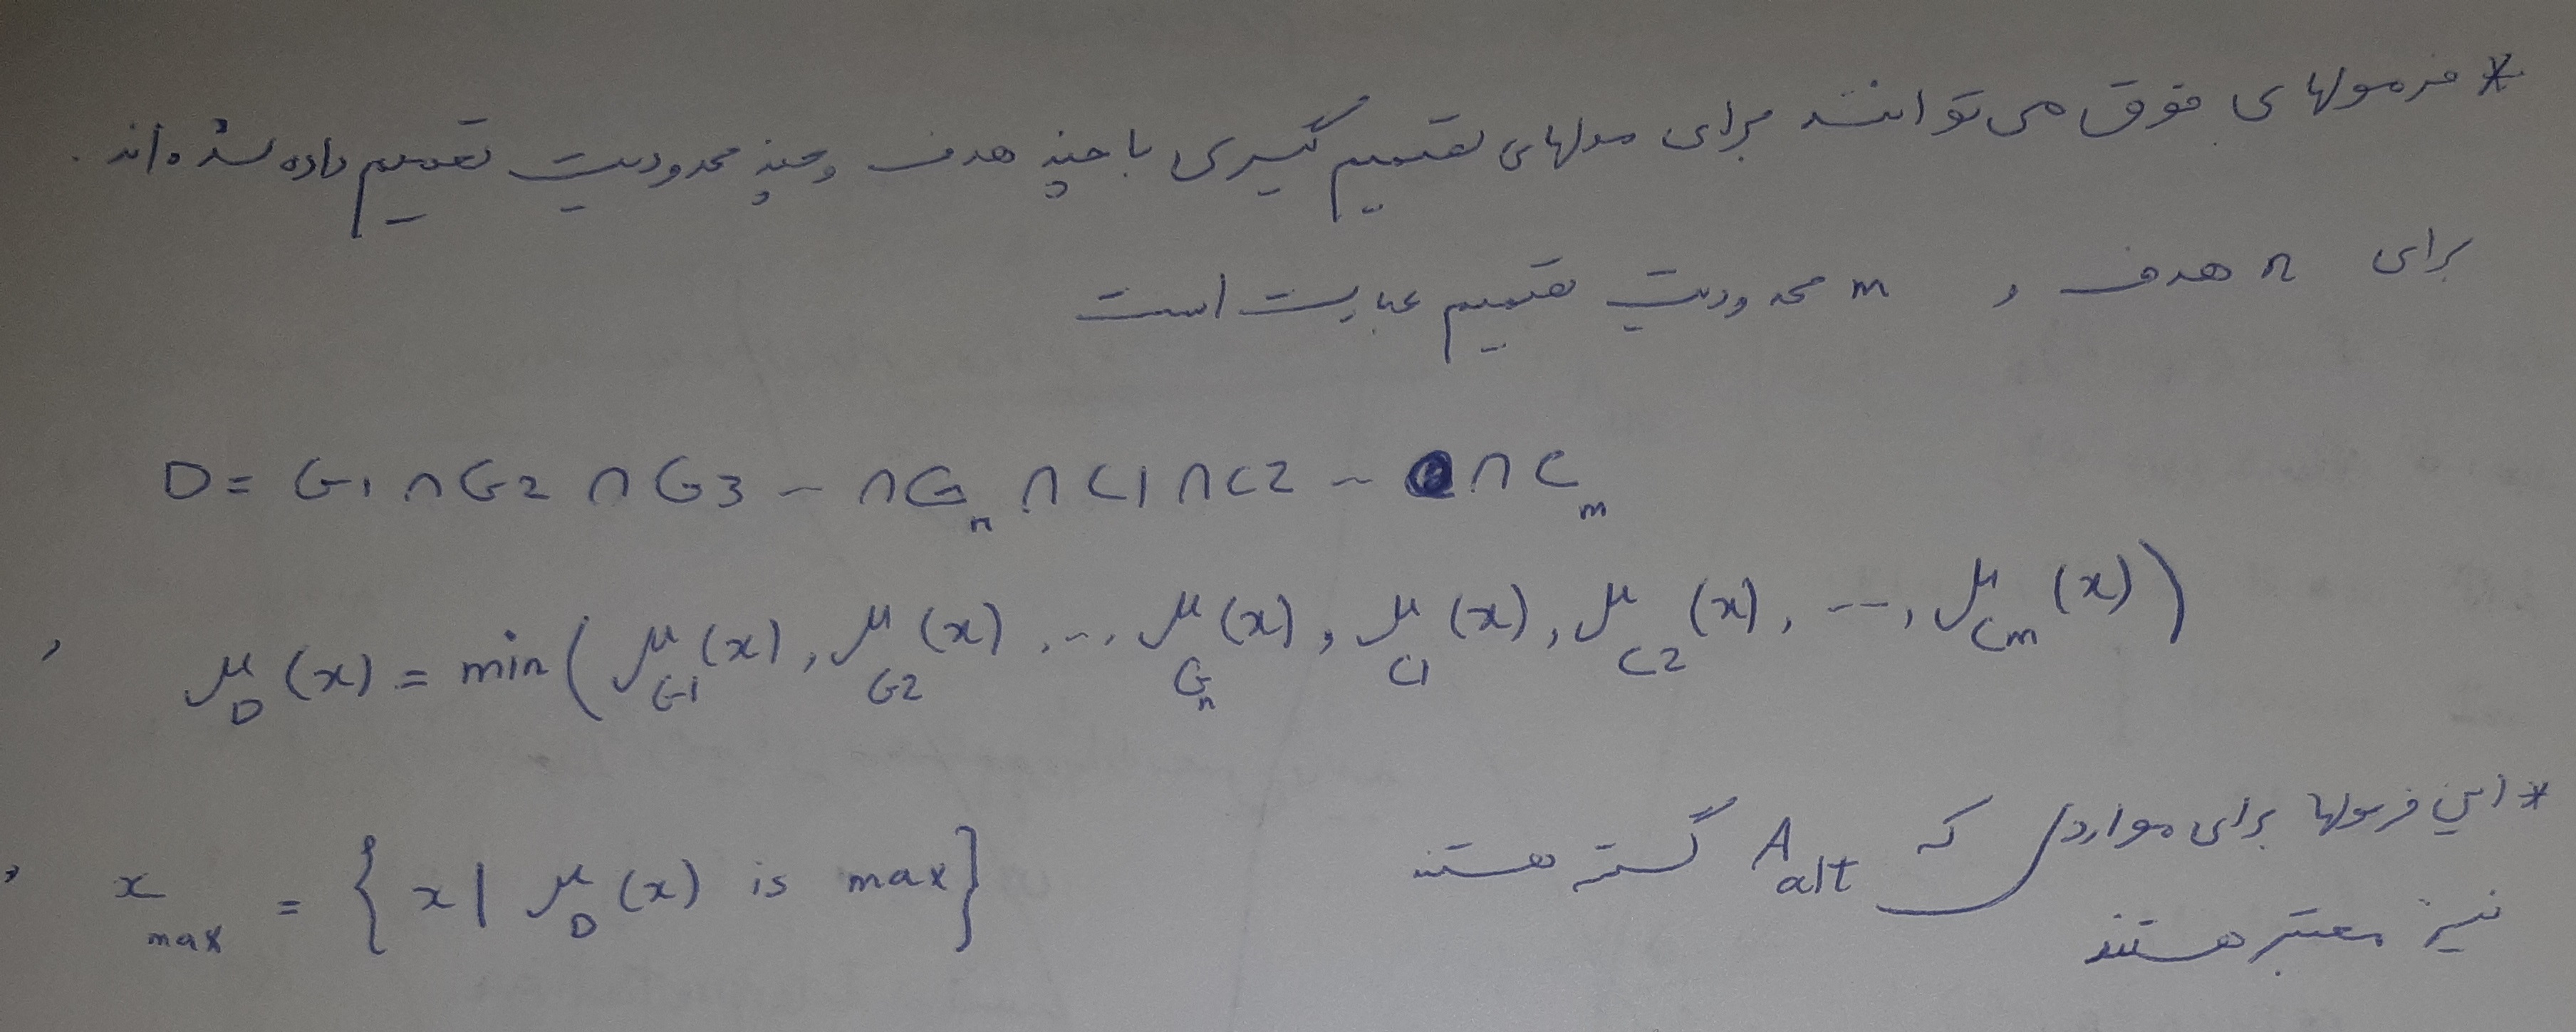 * فرمولهای فوق می توانند برای مدلهای تصمیم گیری با چند هدف و چند محدودیت تعمیم داده شده اند.
برای n هدف و m محدودیت تصمیم عبارست است
D = G1 ∩ G2 ∩ G3 -- ∩ Gₙ ∩ C1 ∩ C2 -- ∩ Cₘ
و μ_D(x) = min(μ_G1(x), μ_G2(x), ..., μ_Gn(x), μ_C1(x), μ_C2(x), ---, μ_Cm(x))
* این فرمولها برای مواردی که A_alt گسسته هستند
نیز معتبر هستند
و x_max = {x | μ_D(x) is max}